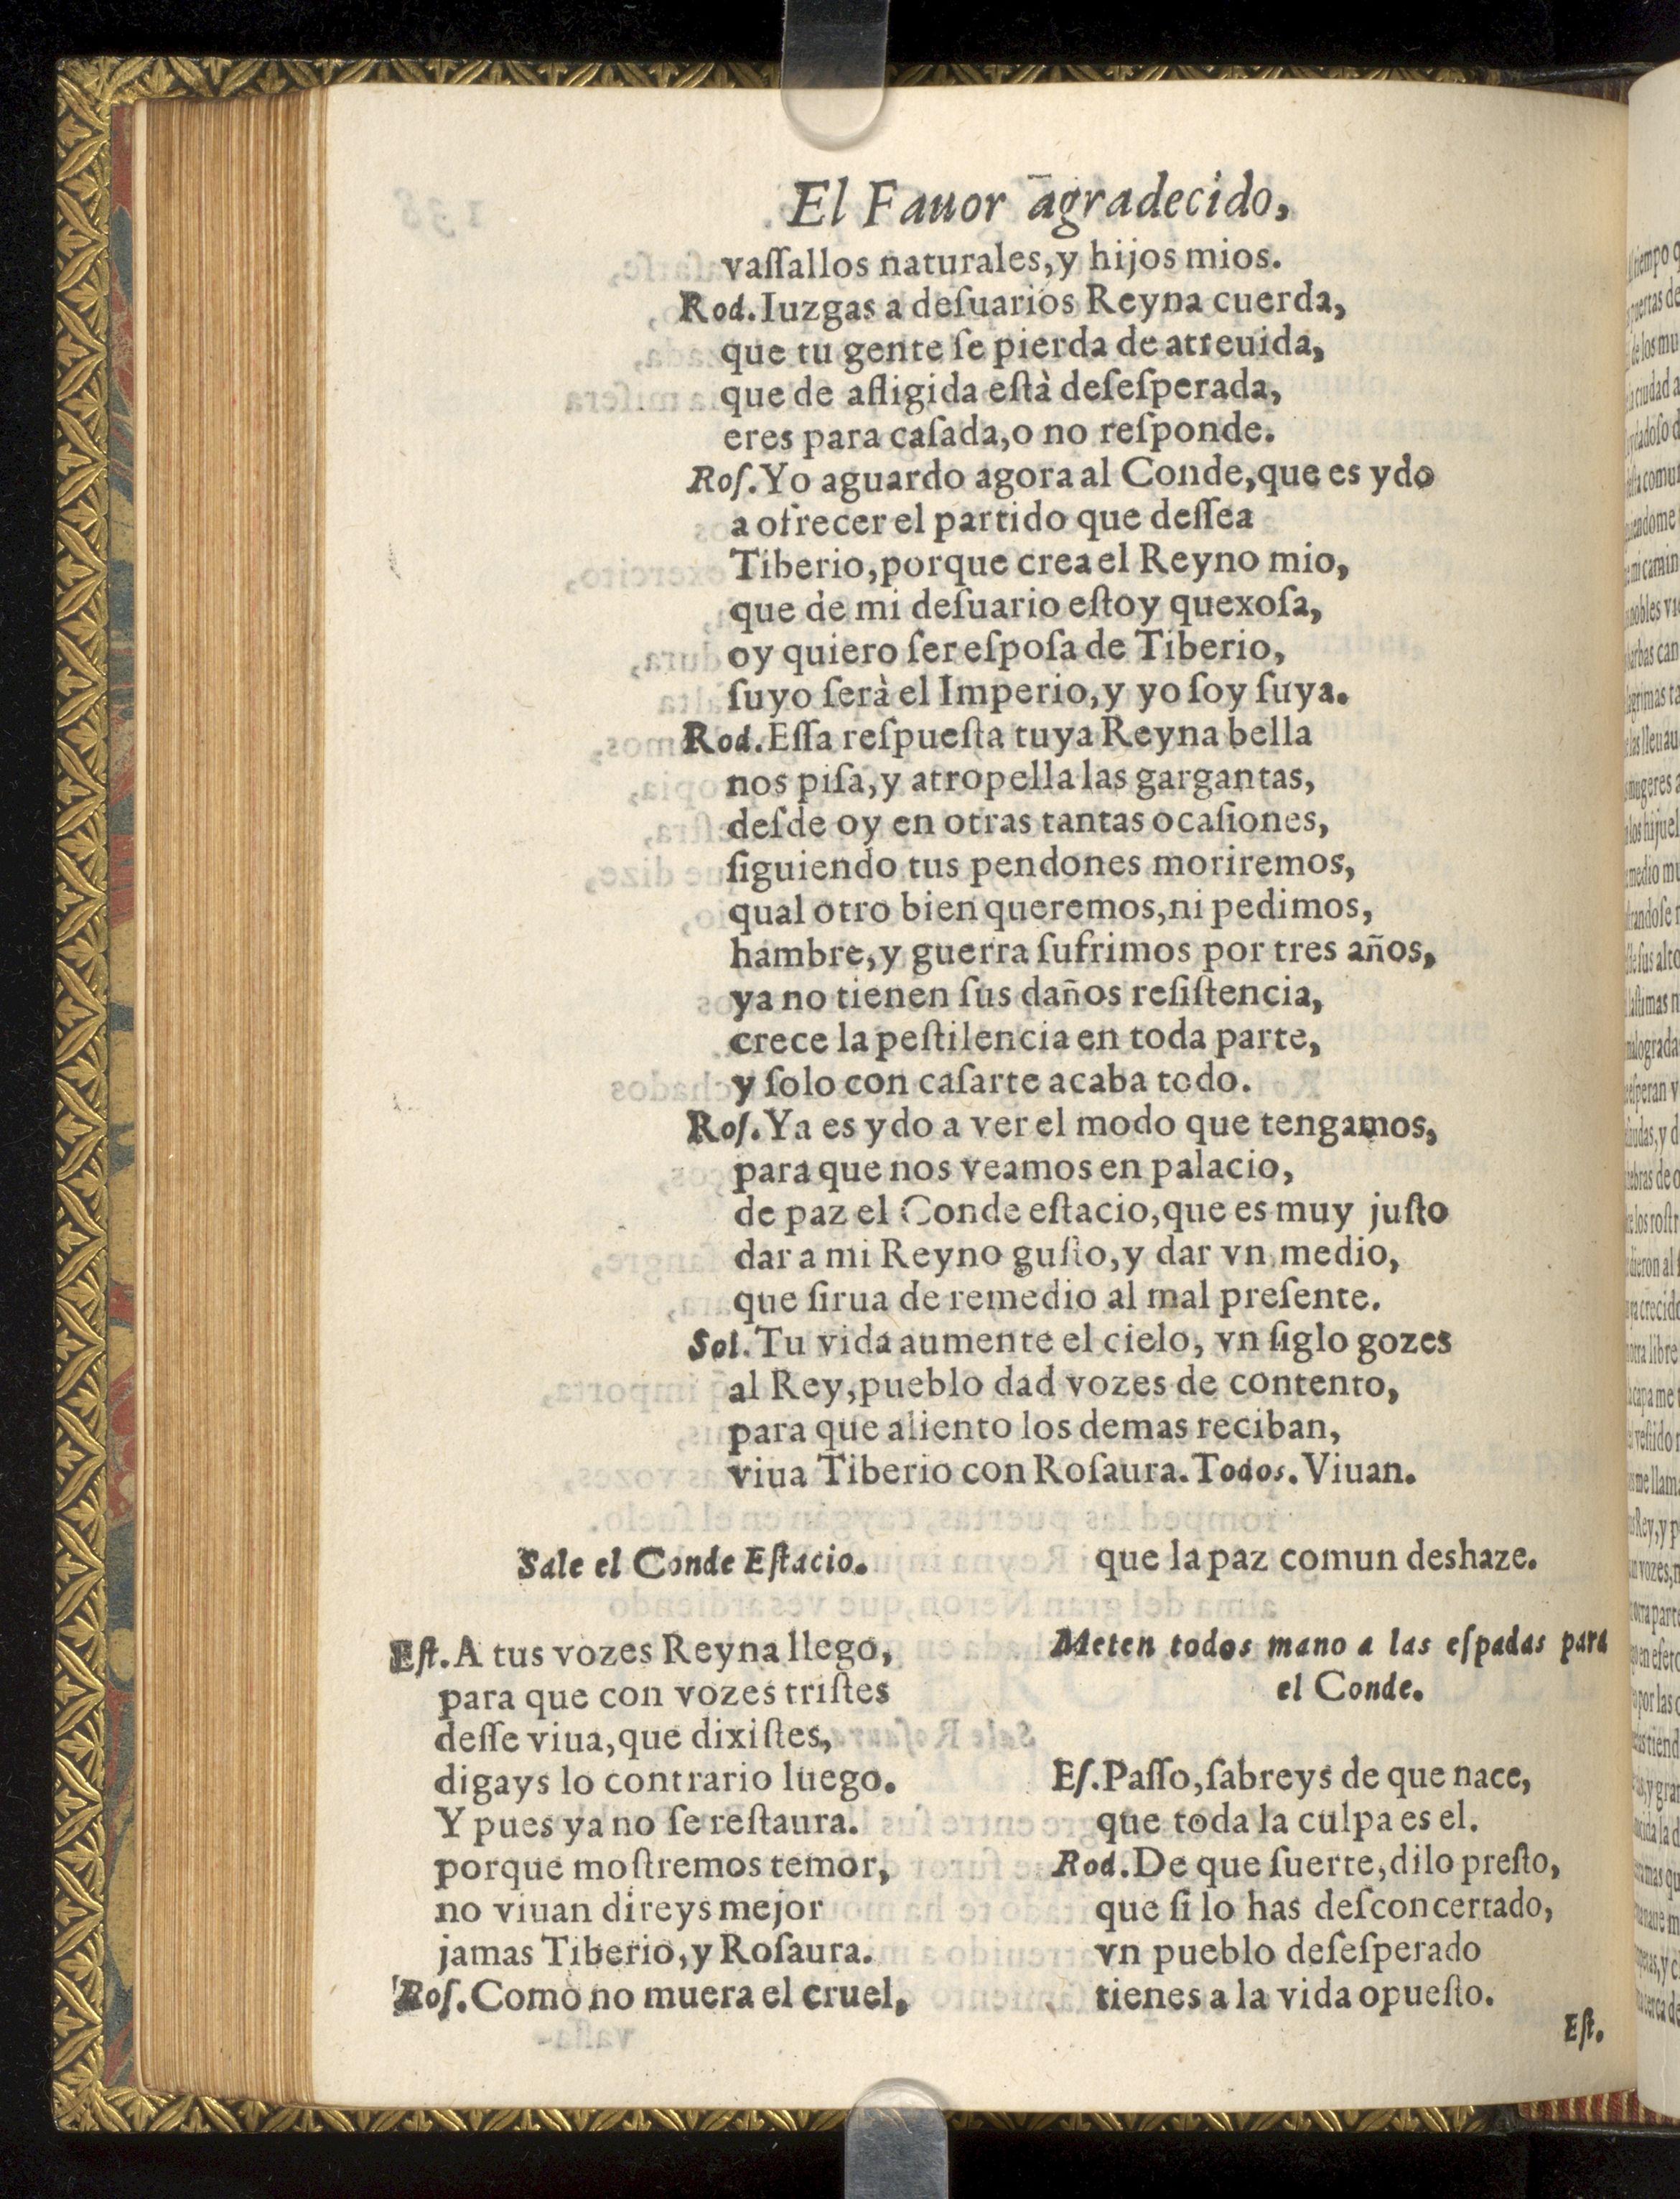 El Fauor agradecido,
vaſſallos naturales,y hijos mios.
Rod.Iuzgas a deſuarios Reyna cuerda,
que tu gente ſe pierda de atreuida,
que de afligida eſtà deſeſperada,
eres para caſada,o no reſponde.
Roſ.Yo aguardo agora al Conde,que es ydo
a ofrecer el partido que deſſea
Tiberio,porque crea el Reyno mio,
que de mi deſuario eſtoy quexoſa,
oy quiero ſer eſpoſa de Tiberio,
ſuyo ſerà el Imperio,y yo ſoy ſuya.
Rod.Eſſa reſpueſta tuya Reyna bella
nos piſa,y atropella las gargantas,
deſde oy en otras tantas ocaſiones,
ſiguiendo tus pendones moriremos,
qual otro bien queremos,ni pedimos,
hambre,y guerra ſufrimos por tres años,
ya no tienen ſus daños reſiſtencia,
crece la peſtilencia en toda parte,
y ſolo con caſarte acaba todo.
Roſ.Ya es ydo a ver el modo que tengamos,
para que nos veamos en palacio,
de paz el Conde eſtacio,que es muy juſto
dar a mi Reyno guſto,y dar vn medio,
que ſirua de remedio al mal preſente.
Sol.Tu vida aumente el cielo, vn ſiglo gozes
al Rey,pueblo dad vozes de contento,
para que aliento los demas reciban,
viua Tiberio con Roſaura.Todos.Viuan.
Sale el Conde Eſtacio.
Eſt.A tus vozes Reyna llego,
para que con vozes triſtes
deſſe viua,que dixiſtes,
digays lo contrario luego.
Y pues ya no ſe reſtaura.
porque moſtremos temor,
no viuan direys mejor
jamas Tiberio,y Roſaura.
Roſ.Como no muera el cruel,
que la paz comun deshaze.
Meten todos mano a las eſpadas para
el Conde.
Eſ.Paſſo,ſabreys de que nace,
que toda la culpa es el.
Rod.De que ſuerte,dilo preſto,
que ſi lo has deſconcertado,
vn pueblo deſeſperado
tienes a la vida opueſto.
Eſt.